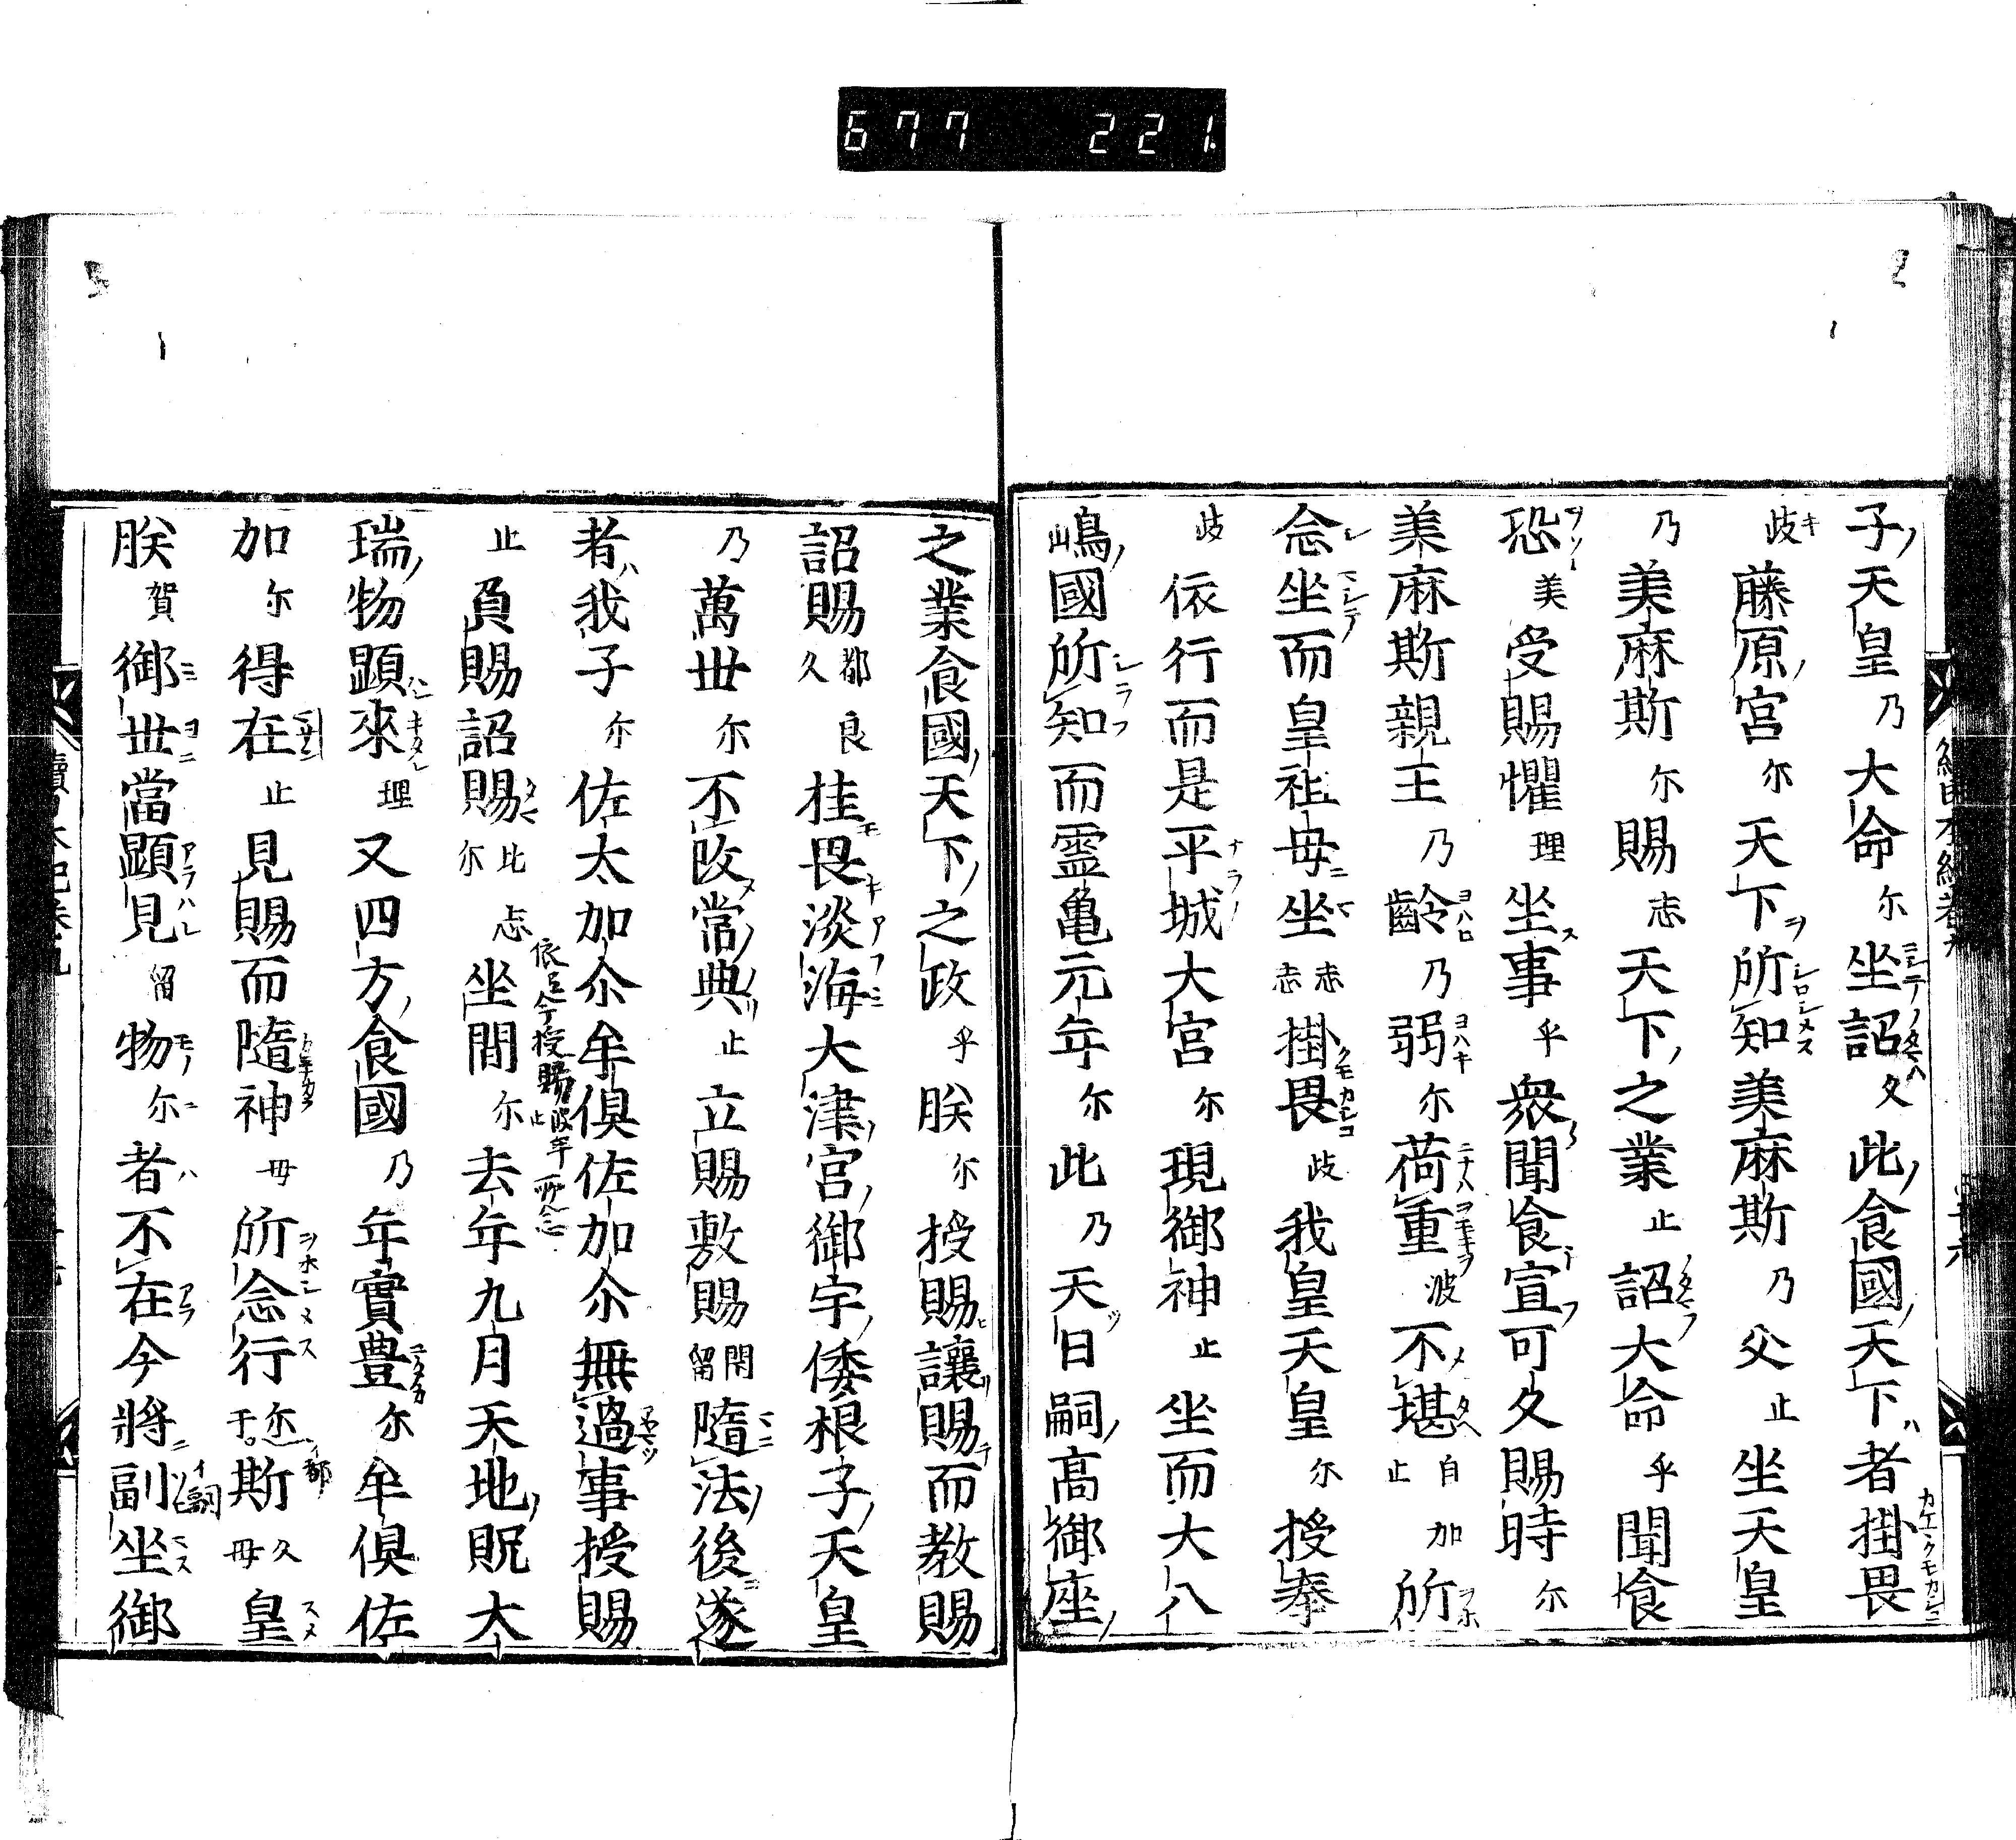 677 221
子天皇乃大命尓坐詔久此食國天下者掛畏
歧藤原宮尓天下所知美麻斯乃父止坐天皇
乃美麻斯尓賜志天下之業止詔大命乎聞食
恐美受賜懼理坐事乎衆聞食宣可久賜時尓
美麻斯親王乃齡乃弱尓荷重波不堪自加止所
念坐而皇祖母坐志志掛畏歧我皇天皇尓授奉
歧依行而是平城大宮尓現御神止坐而大八
嶋國所知而霊亀元年尓此乃天日嗣髙御座
之業食國天下之政乎朕尓授賜讓賜而教賜
詔賜都良久挂畏淡海大津宮御宇倭根子天皇
乃萬世尓不改常典止立賜敷賜閇留隨法後遂
者我子尓佐太加尒牟俱佐加尒無過事授賜
止負賜詔賜比志尓依是今授賜坐間尓去年九月天地貺大
瑞物顯來理又四方食國乃年實豊尓牟俱佐
加尓得在止見賜而隨神毋所念行尓于斯久毋皇
朕賀御世當顯見留物尓者不在今將副坐御